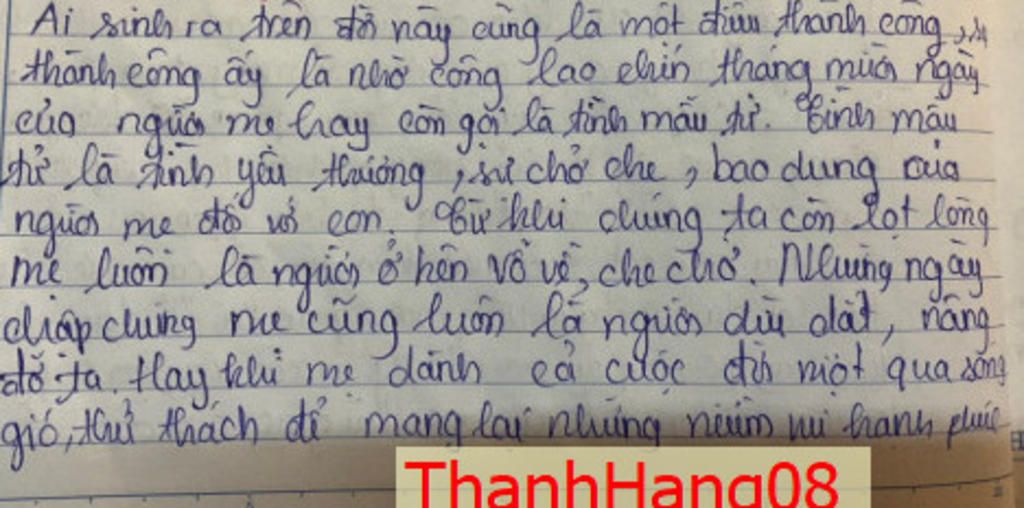 Ai sinh ra trên đời này cũng là một điều thành công, sự
thành công ấy là nhờ công lao chín tháng mười ngày
của người mẹ hay còn gọi là tình mẫu tử. Tình mẫu
tử là tình yêu thương, sự chở che, bao dung của
người mẹ đối với con. Từ khi chúng ta còn lọt lòng
mẹ luôn là người ở bên vỗ về, che chở. Những ngày
chập chững mẹ cũng luôn là người dìu dắt, nâng
đỡ ta. Hay khi mẹ dành cả cuộc đời một qua sóng
gió, thử thách để mang lại những niềm vui hạnh phúc
ThanhHang08